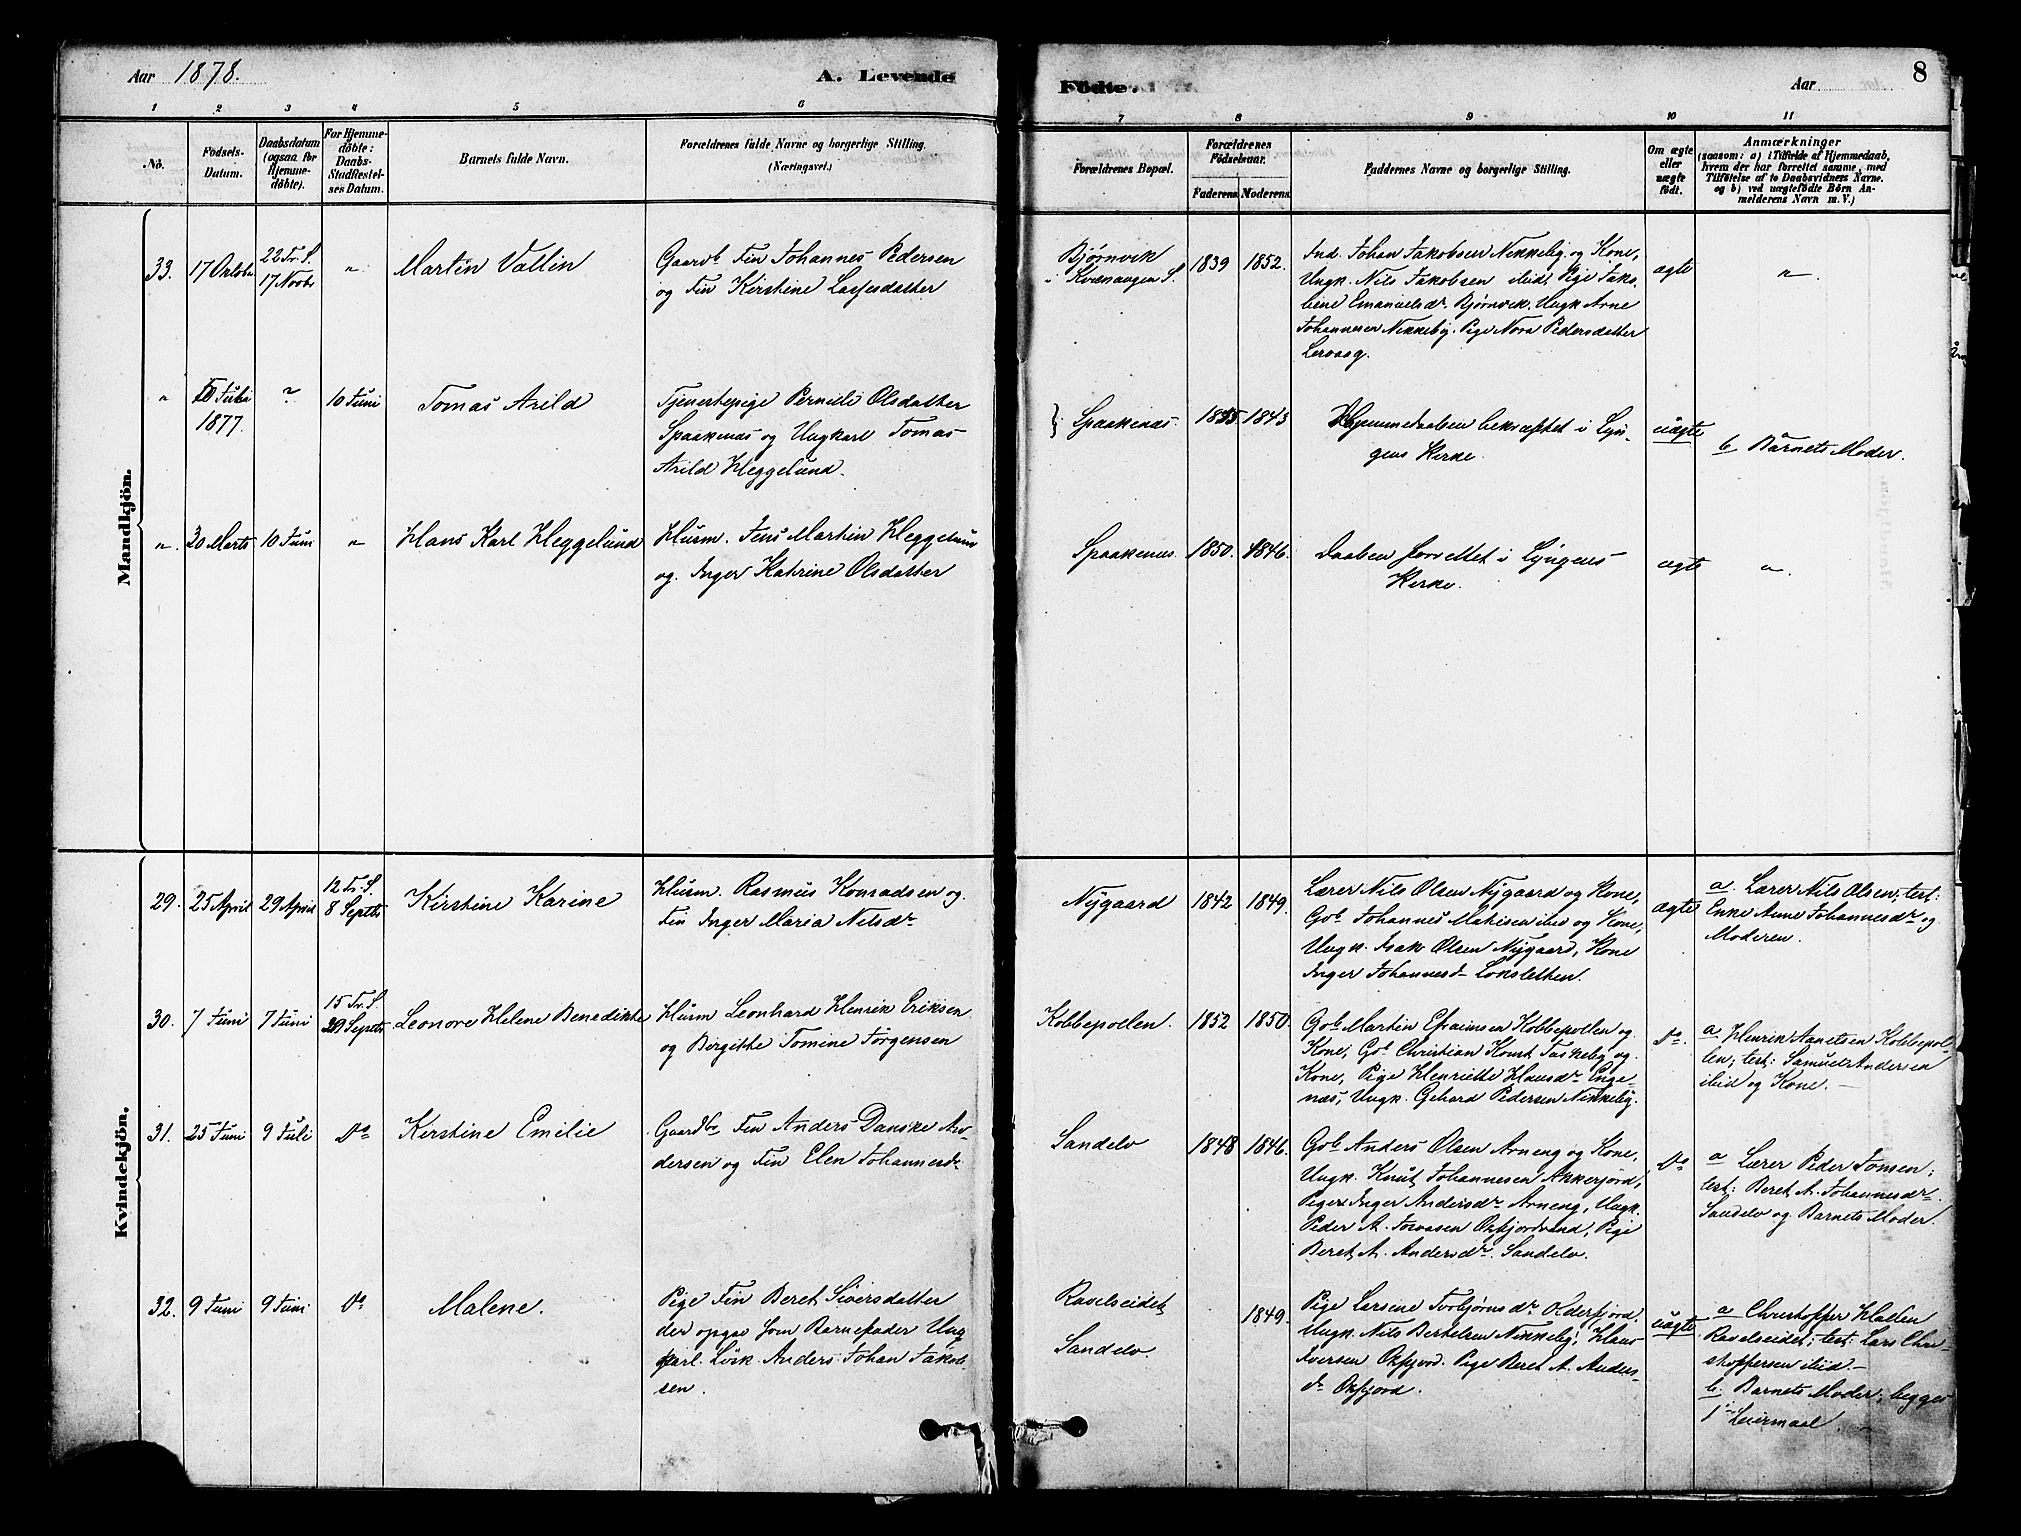 Aar 1878.
A. Levende
Födte.
Aar
8
1 2 3 4 5 6
7 8 9 10 11
No.
Födsels-
Datum.
Daabsdatum
(ogsaa for
Hjemme-
döbte).
For Hjemme-
döbte:
Daabs-
Stadfæstel-
ses Datum.
Barnets fulde Navn.
Forældrenes fulde Navne og borgerlige Stilling.
(Næringsvei.)
Forældrenes Bopæl.
Forældrenes
Födselsaar.
Faderens Moderens
Faddernes Navne og borgerlige Stilling.
Om ægte
eller
uægte
födt.
Anmærkninger
(saasom: a) i Tilfælde af Hjemmedaab,
hvem der har forrettet samme, med
Tilföielse af to Daabsvidners Navne.
og b) ved uægtefödte Börn An-
melderens Navn m. V.)
Mandkjön.
33.
17 Octobr
22 Tr. S.
17 Novbr
"
Martin Vallin
Gaardb. Fin Johannes Pedersen
og Fin Kirstine Lassesdatter
Bjørnvik
i Kvænangen S.
1839
1852.
Ind. Johan Jakobsen Nikkeby og Kone,
Ungk. Nils Jakobsen ibid, Pige Jako-
bine Emanuelsdr Bjørnvik, Ungk Arne
Johannesen Nikkeby. Pige Nora Pedersdatter
ægte
"
"
10 Juli
1877.
"
10 Juni
Tomas Arild
Tjenestepige Pernille Olsdatter
Spaakenæs og Ungkarl Tomas
Arild Heggelund.
Spaakenæs.
1855. 1843
Hjemmedaaben bekræftet i Lyn-
gens Kirke.
uægte
b Barnets Moder.
"
30 Marts
10 Juni
"
Hans Karl Heggelund
Husm. Jens Martin Heggelund
og Inger Katrine Olsdatter
Spaakenæs
1850. 1846.
Daaben forrettet i Lyngens
Kirke.
ægte
"
Kvindekjön.
29.
25 April
29 April
12 Tr. S.
8 Septbr
Kirstine Karine
Husm. Rasmus Konradsen og
Fin Inger Maria Nilsdr
Nygaard
1842 1849.
Lærer Nils Olsen Nygaard og Kone,
Gbr Johannes Mathisen ibid og Kone,
Ungk. Isak Olsen Nygaard, Kone
Inger Johannesd Loksletten.
ægte
a. Lærer Nils Olsen; test:
Enke Anne Johannesdr og
Moderen.
30.
7 Juni
7 Juni
15 Tr. S.
29 Septbr
Leonore Helene Benedikte
Husm Leonhard Henrik Eriksen
og Birgitte Tomine Jørgensen
Kobbepollen.
1852 1850.
Gbr Martin Efraimsen Kobbepollen og
Kone, Gbr Christian Knut Taskeby og
Kone, Pige Henriette Hansdr Enge-
næs, Ungk. Gehard Pedersen Nikkeby.
Do.
a Henrik Kobbepol-
len; test: Samuel Andersen
ibid og Kone.
31.
25 Juni
9 Juli
Do
Kirstine Emilie
Gaardbr Fin Anders Danske An-
dersen og Fin Elen Johannesdr
Sandelv
1848 1846.
Gbr Anders Olsen Arneng og Kone,
Ungk. Knut Johannesen Ankerfjord,
Pige Inger Andersdr Arneng, Ungk.
Peder A. Josvasen Oxfjordvand, Pige
Beret A. Andersdr. Sandelv.
Do
a Lærer Peder Tomsen;
test: Beret A. Johannesdr.
Sandelv og Barnets Moder.
32.
9 Juni
9 Juni
Do
Malene.
Pige Fin Beret Siversdatter
der opgav som Barnefader Ung
karl Løsk. Anders Johan Jakob-
sen.
Ravelseidet
Sandelv.
1849.
Pige Larsine Torbjørnsdr Olderfjord.
Ungk. Nils Bertelsen Nikkeby, Hans
Iversen Oxfjord. Pige Beret A. Anders-
dr Oxfjord.
uægte
a Christoffer Hallen
Ravelseidet; test: Lars Chri-
stoffersen ibid.
b. Barnets Moder; begges
1ste Leiermaal.